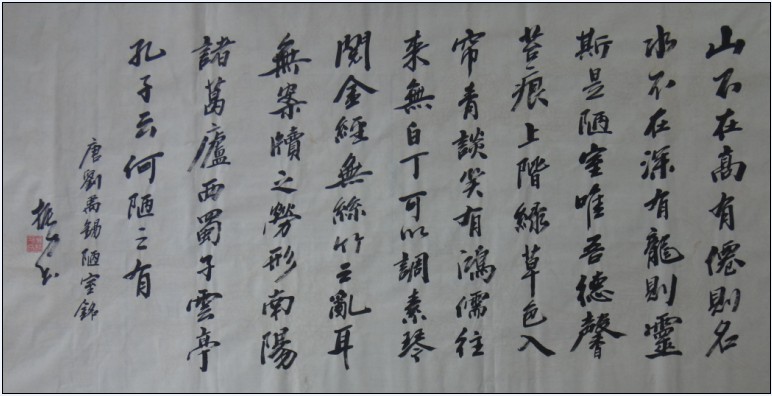 山不在高有僊則名
水不在深有龍則靈
斯是陋室唯吾德馨
苔痕上階綠草色入
帘青談笑有鴻儒往
来無白丁可以調素琴
閱金經無絲竹之亂耳
無案牘之勞形南陽
諸葛廬西蜀子雲亭
孔子云何陋之有
唐劉禹錫陋室銘